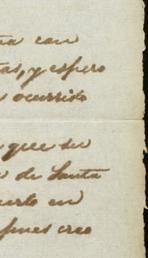 con
tas, y espero
ocurrido
que su
de Santa
en
pues creo